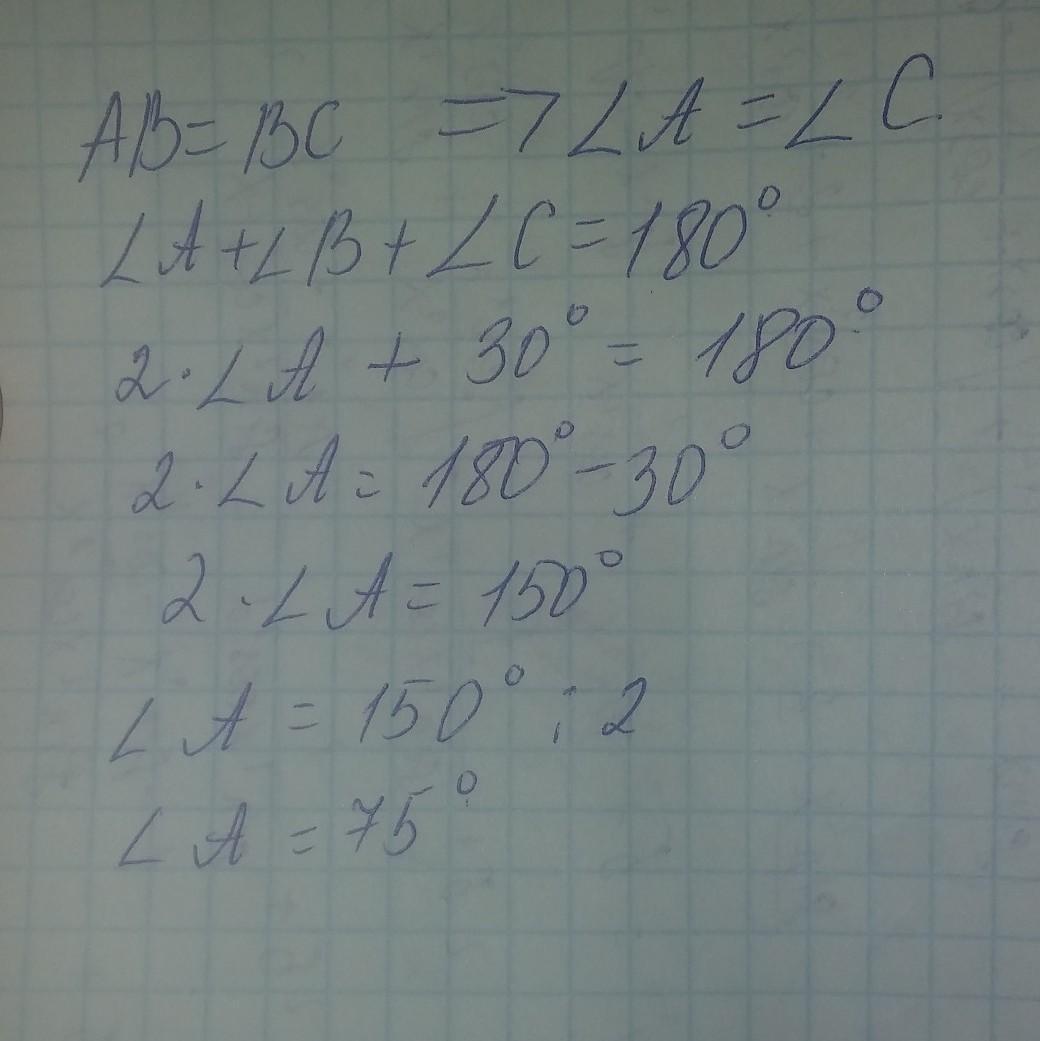 AB = BC => ∠A = ∠C
∠A + ∠B + ∠C = 180°
2·∠A + 30° = 180°
2·∠A = 180° - 30°
2·∠A = 150°
∠A = 150° : 2
∠A = 75°